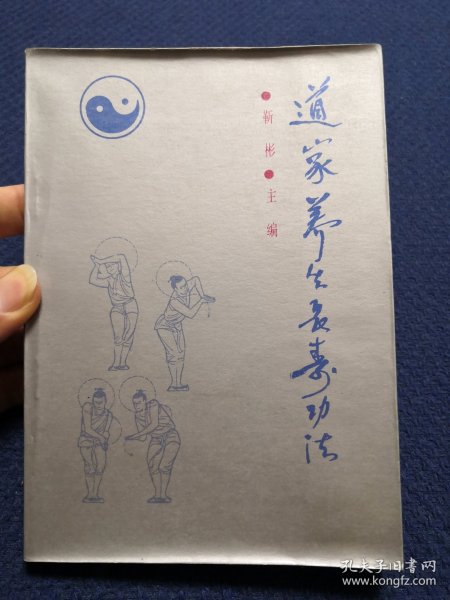 道家养生长寿功法
●靳彬●主编
孔夫子旧书网
www.kongfz.com